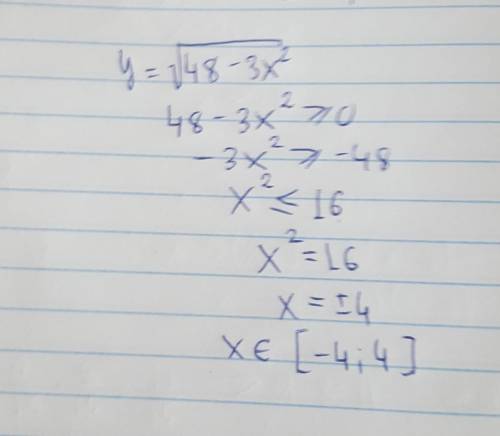 y = √48 - 3x²
48 - 3x² ⩾ 0
-3x² ⩾ -48
x² ≤ 16
x² = 16
x = ±4
x ∈ [-4; 4]